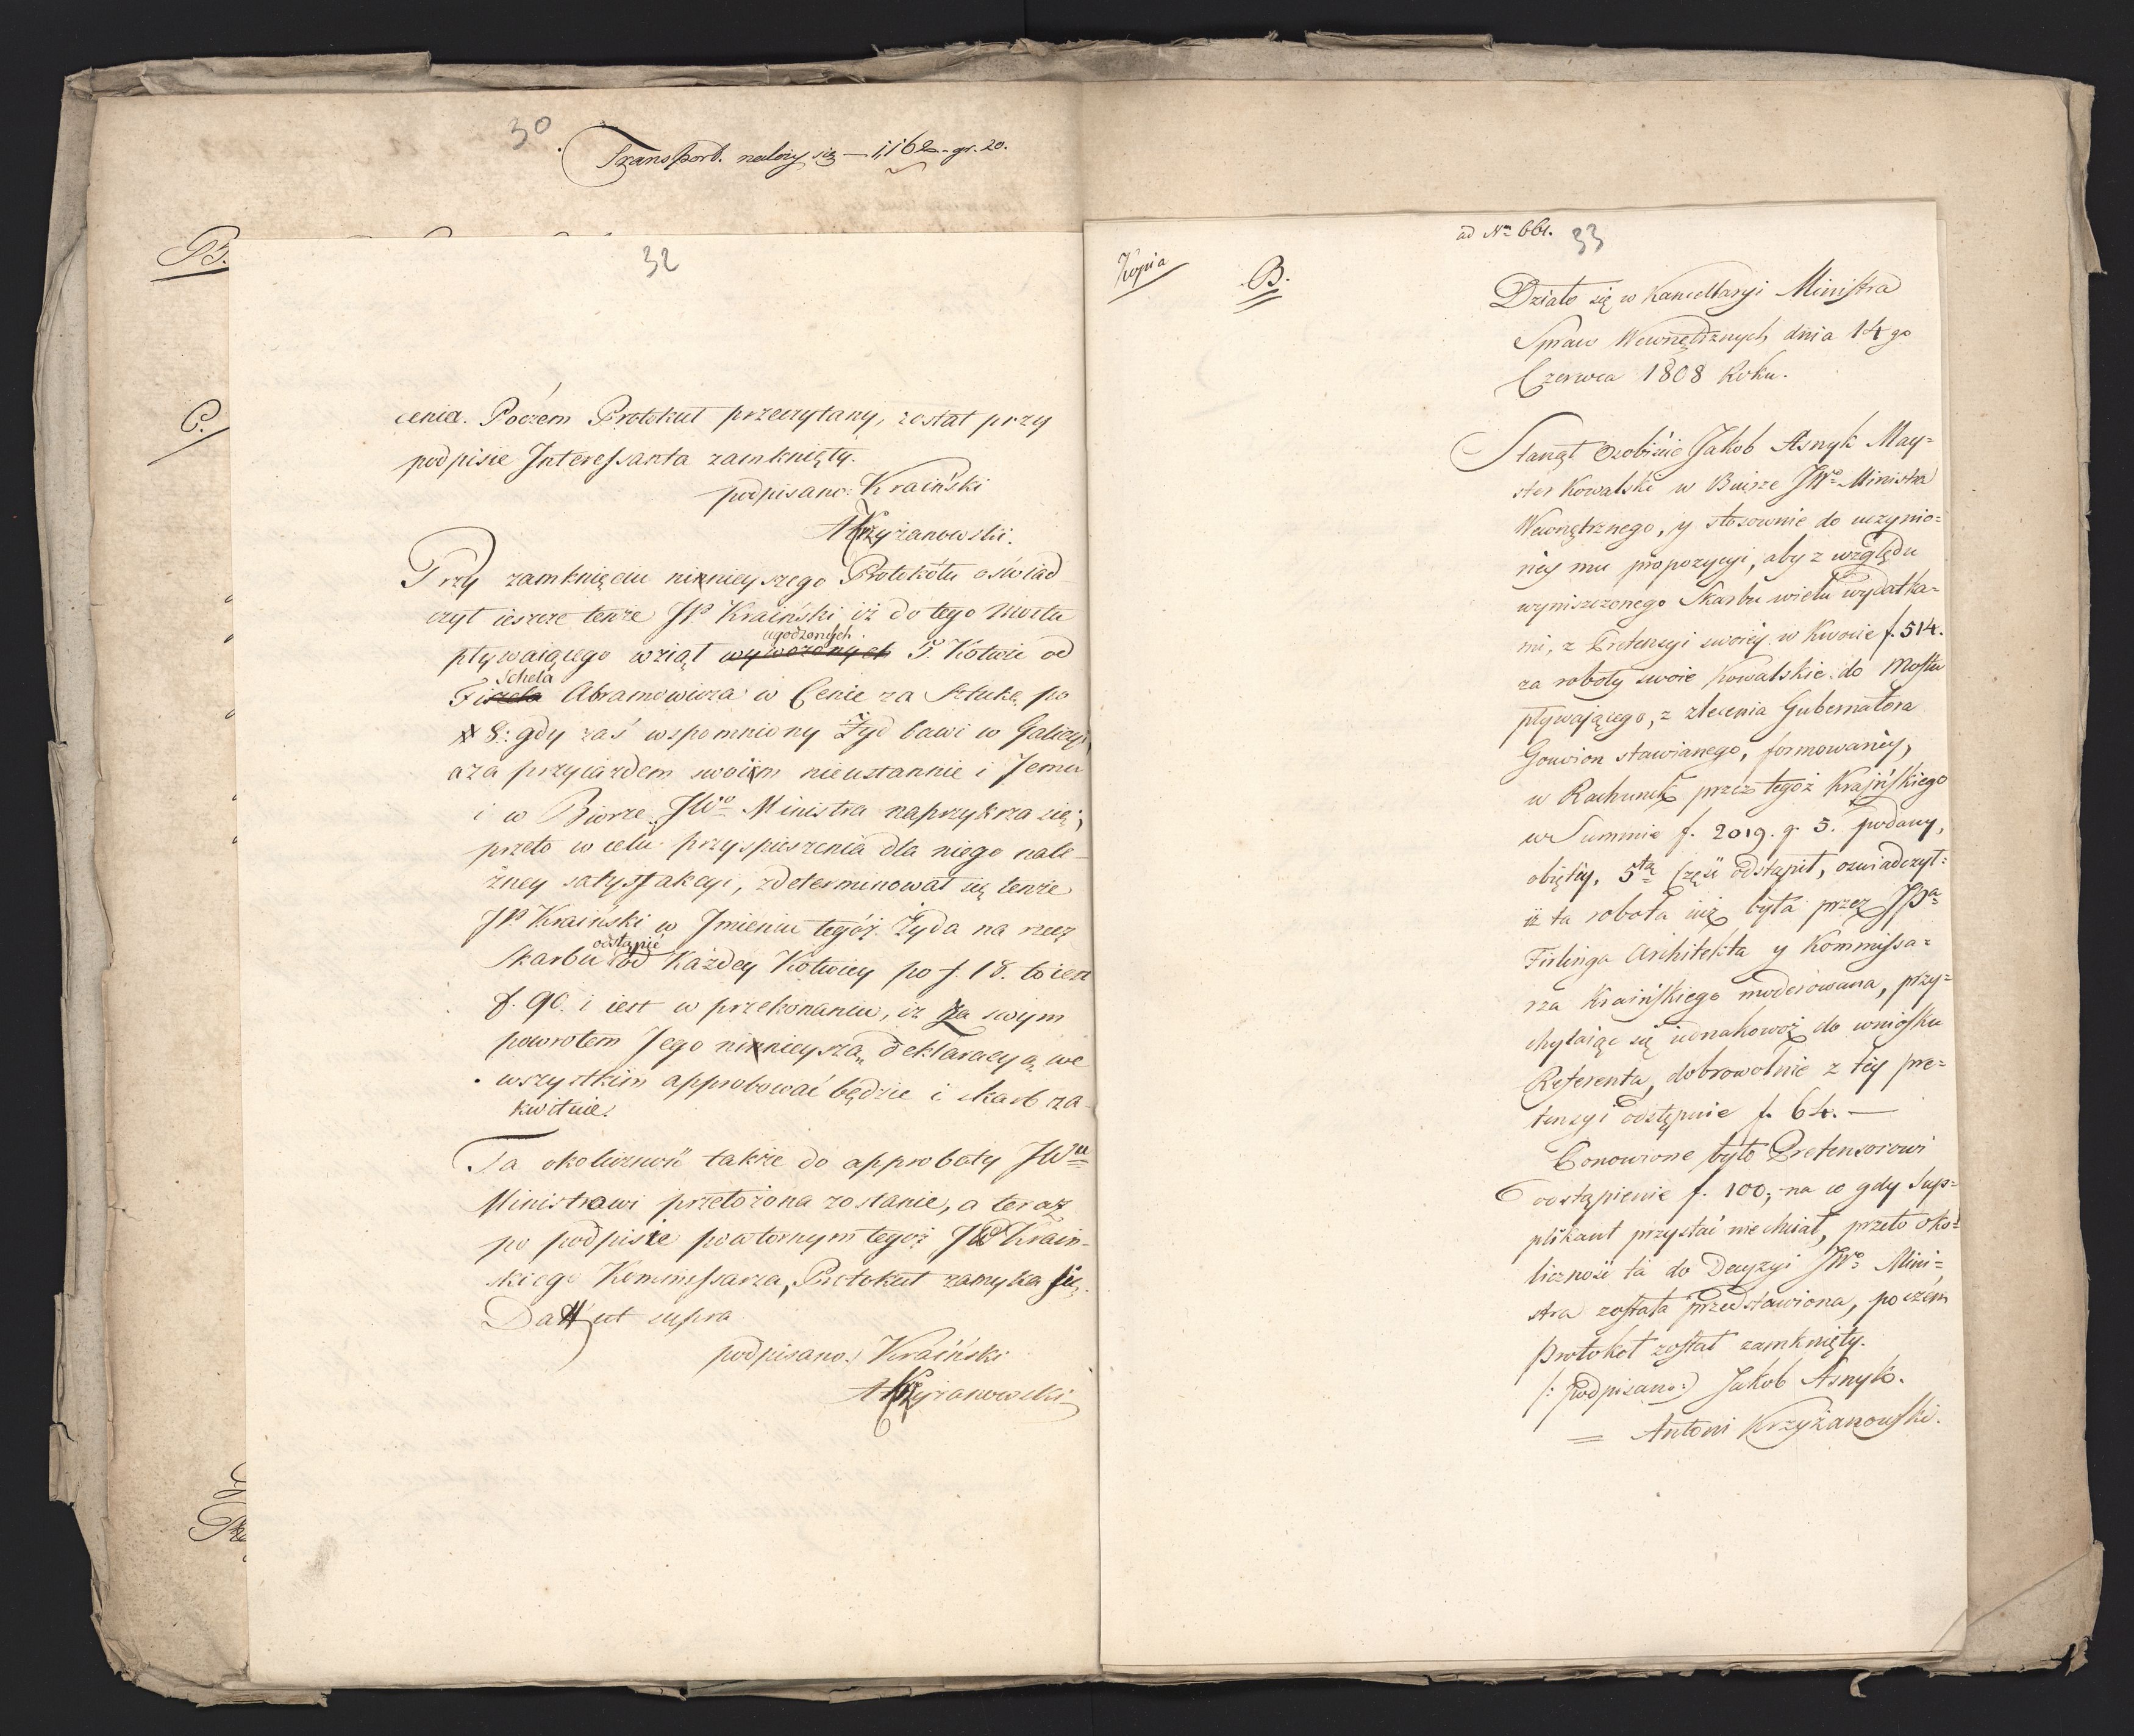 30
Transport. należy się — 1,162 - gr. 20.
B.
C.
32
cenia. Poczem Protokuł przeczytany, został przy
podpisie Interessanta zamknięty.
podpisano: Kraiński
AKrzyżanowski.
Przy zamknięciu ninnieyszego Protokółu oświad
czył ieszcze tenże JP Kraiński iż do tego Mostu
ugodzonych
pływaiącego wziął wywozonych 5. Kotwic od
Schela
Fiszela Abramowicza w Cenie za Sztukę po
# 8: gdy zaś wspomniony Żyd bawi w Galicyi
a za przyiazdem swoim nieustannie i Jemu
i w Biorze JWo Ministra naprzykrza się;
przeto w celu przyspieszenia dla niego nale-
żney satysfakcyi, zdeterminował się tenże
JP Kraiński w Jmieniu tegóż Żyda na rzecz
odstąpić
Skarbu od każdey Kotwicy po f. 18. to iest
f. 90. i iest w przekonaniu, iż za swym
powrotem Jego ninnieyszą deklaracyą we
wszystkim approbować będzie i skarb za-
kwituie.
Ta okoliczność także do approbaty JWu
Ministrowi przełożona zostanie, a teraz
po podpisie powtornym tegoż JP Krain-
skiego Kommissarza, Protokuł zamyka się.
Datt ut supra
podpisano: Kraiński
AKrzyżanowski
Kopia
B.
ad No 661.
33
Działo się w Kancellaryi Ministra
Spraw Wewnętrznych dnia 14go
Czerwca 1808 Roku.
Stanął Osobiście Jakób Asnyk May=
ster Kowalski w Buirze JWo Ministra
Wewnętrznego, y stosownie do uczynio=
ney mu propozycyi, aby z względu
wyniszczonego Skarbu wielu wydatka=
mi, z Pretensyi swoiey w Kwocie f. 514.
za roboty swoie Kowalskie do Mostu
pływającego, z zlecenia Gubernatora
Gouvion stawianego, formowaney,
w Rachunek przez tegoż Kraińskiego
w Summie f. 2019. g. 5. podany,
obiętey, 5tą Część odstąpił, oswiadczył:
iż ta robota iuż była przez JPa
Firlinga Architekta y Kommissa=
rza Kraińskiego moderowana, przy=
chylaiąc się iednakowoż do wniosku
Referenta, dobrowolnie z tey pre=
tensyi odstępuie f. 64. —
Ponowione było Pretensorowi
odstąpienie f. 100; na co gdy Sup=
plikant przystać nie chciał, przeto oko=
liczność ta do Decyzyi JWo Mini=
stra została przedstawiona, poczem
Protokoł został zamknięty.
(: podpisano:) Jakób Asnyk.
= Antoni Krzyżanowski.